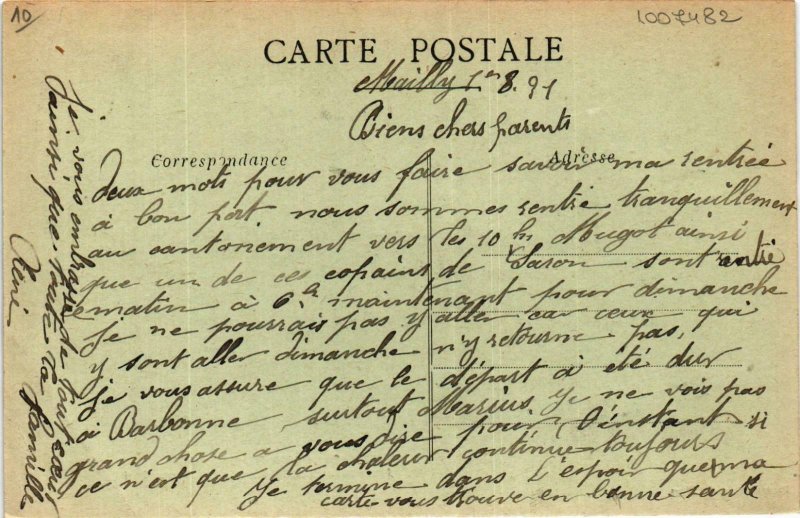 10
1007482
CARTE POSTALE
Mailly 1er 8. 91
Biens chers parents
Correspondance
Adresse
deux mots pour vous faire savoir ma rentrée
à bon port nous sommes rentré tranquillement
au cantonement vers les 10 h Mugot ainsi
que un de ces copains de Saron sont entré
ematin à 6h maintenant pour dimanche
je ne pourrais pas y aller car ceux qui
y sont aller dimanche n'y retourne pas,
je vous assure que le départ à été dur
à Barbonne surtout Marius, je ne vois pas
grand chose a vous dire pour l'instant si
ce n'est que la chaleur continue toujours
je termine dans l'espoir que ma
carte vous trouve en bonne santé
Je vous embrasse de tout cœur
ainsi que toute la famille
René